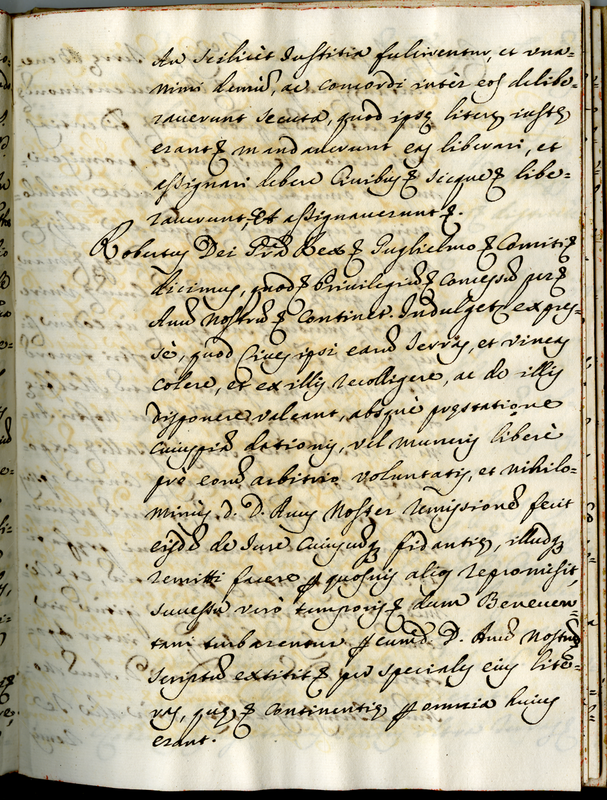 an scilicet Justitia fulcirentur, et una-
nimi demũ, ac concordi inter eos delibe-
rauerunt secuta, quod ipsę literę iustę
erant & mandauerunt eas liberari, et
assignari debere Ciuibus & sicque & libe-
rauerunt, et assignauerunt &.
Robertus Dei Grã Rex & Guglielmo & Comiti &
dicimus, quod & Priuilegiũ & Concessũ per &
Auũ Nostrũ & Continet. Indulget expres-
sè, quod Ciues ipsi earũ Terras, et vineas
colere, et ex illis recolligere, ac de illis
disponere valeant, absque pręstatione
Cuiuspiã dationis, vel muneris liberè
pro eorũ arbitrio voluntatis, et nihilo-
minus d. D. Auus Noster remissionẽ fecit
eisdẽ de Iure Cuiuscũq; fidantię, illudq;
remitti facere p quosuis alios repromisit,
successu verò temporis & dum Beneuen-
tani turbarentur p eumd. D. Auũ Nostrũ
scriptũ extitit & per speciales eius lite-
ras, quę & Continentię p omnia huius
erant.